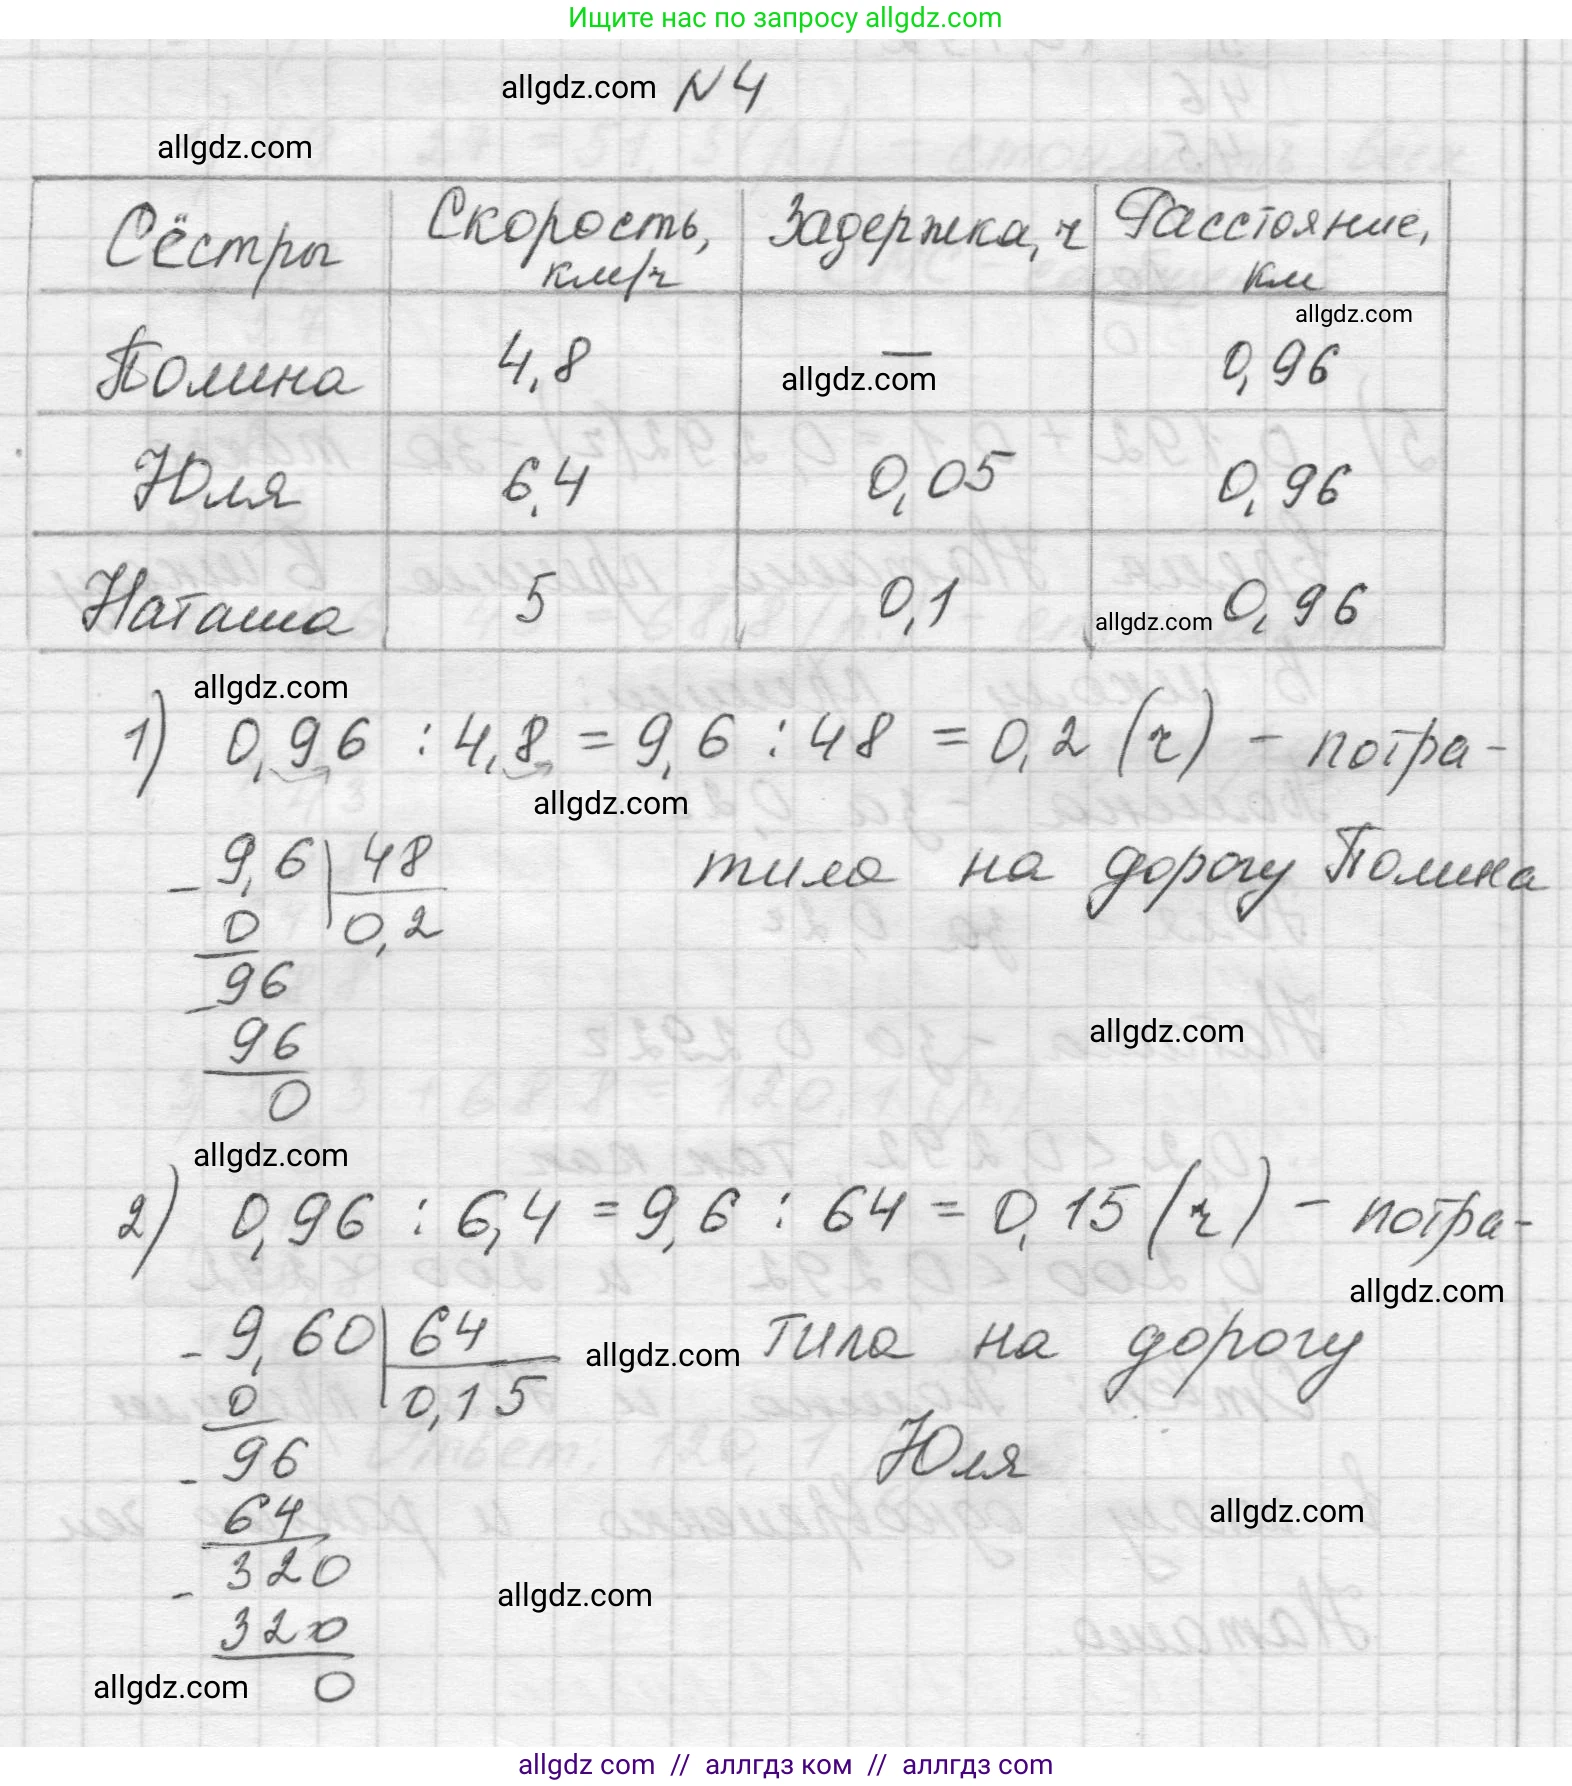 Ищите нас по запросу allgdz.com
allgdz.com N4
allgdz.com
Сёстры Скорость, км/ч Задержка, ч Расстояние, км
allgdz.com
Полина 4,8 — 0,96
allgdz.com
Юля 6,4 0,05 0,96
Наташа 5 0,1 0,96
allgdz.com
allgdz.com
1) 0,96 : 4,8 = 9,6 : 48 = 0,2 (ч) - потра-
allgdz.com
тила на дорогу Полина
- 9,6 48
0 0,2
- 96
96
0
allgdz.com
allgdz.com
2) 0,96 : 6,4 = 9,6 : 64 = 0,15 (ч) - потра-
allgdz.com
тила на дорогу
allgdz.com
Юля
- 9,60 64
0 0,15
- 96
64
- 320
320
0
allgdz.com
allgdz.com
allgdz.com
allgdz.com // аллгдз ком // аллгдз.com